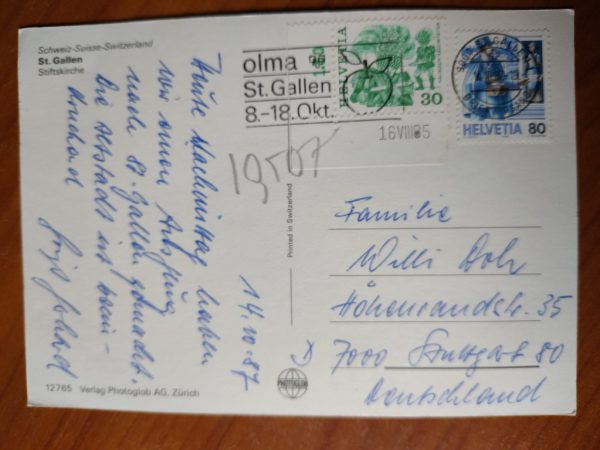 Schweiz-Suisse-Switzerland
St. Gallen
Stiftskirche
14.10.87
Heute Nachmittag haben
wir einen Ausflug
nach St. Gallen gemacht.
Die Altstadt ist
12765 Verlag Photoglob AG, Zürich
Printed in Switzerland
PHOTOGLOB
olma
St. Gallen
8.-18. Okt.
HELVETIA
30
HELVETIA 80
Familie
Willi
Höhenrandstr. 35
7000 Stuttgart 80
Deutschland